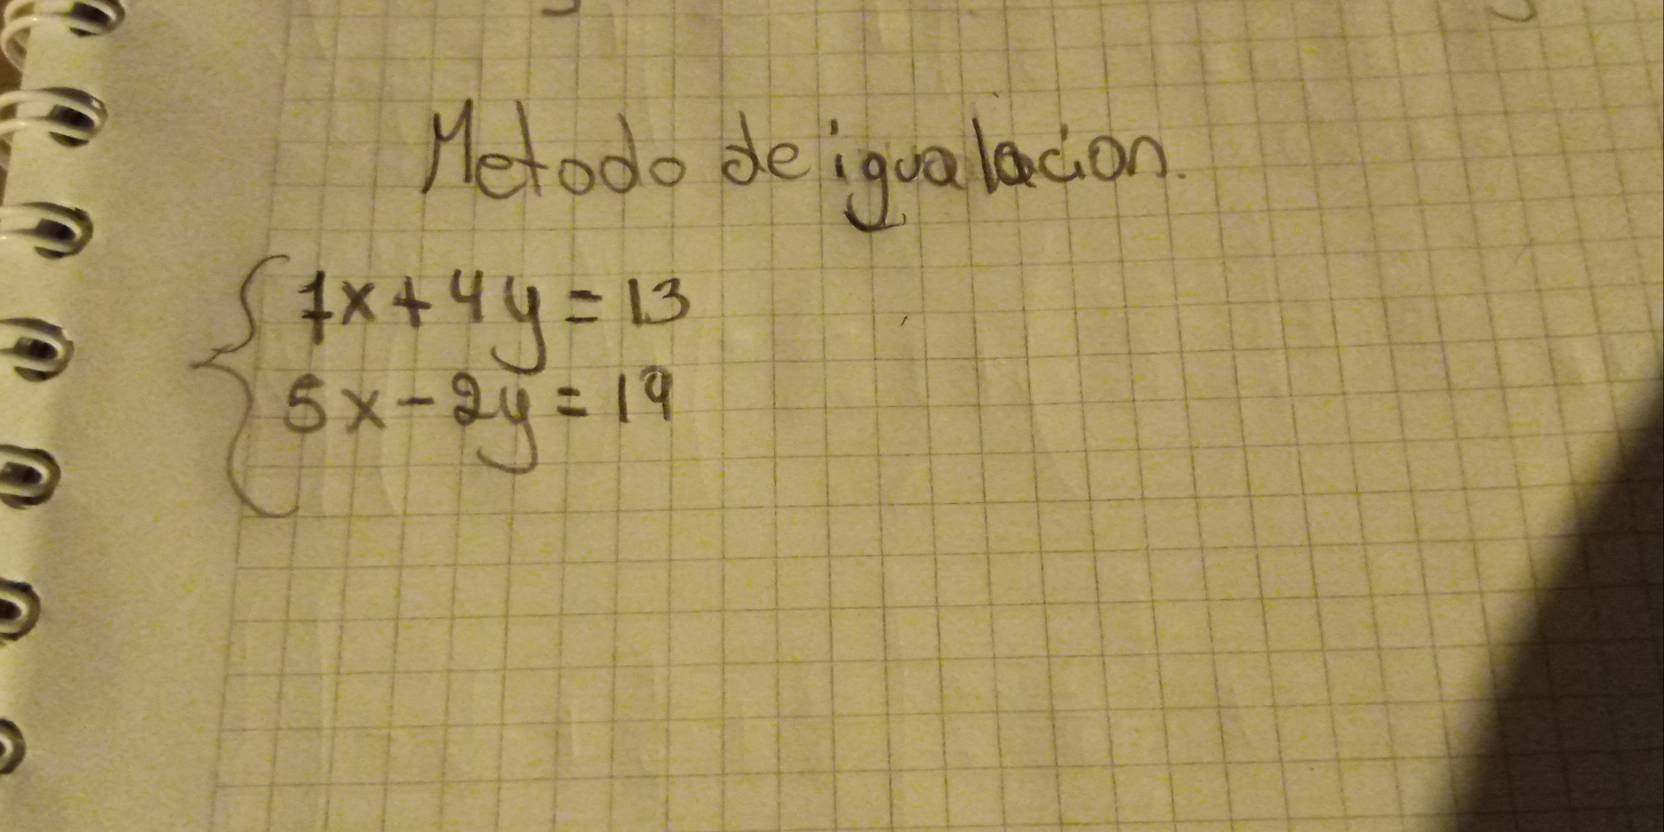 Metodo de igualacion.
7x+4y=13
5x-2y=19